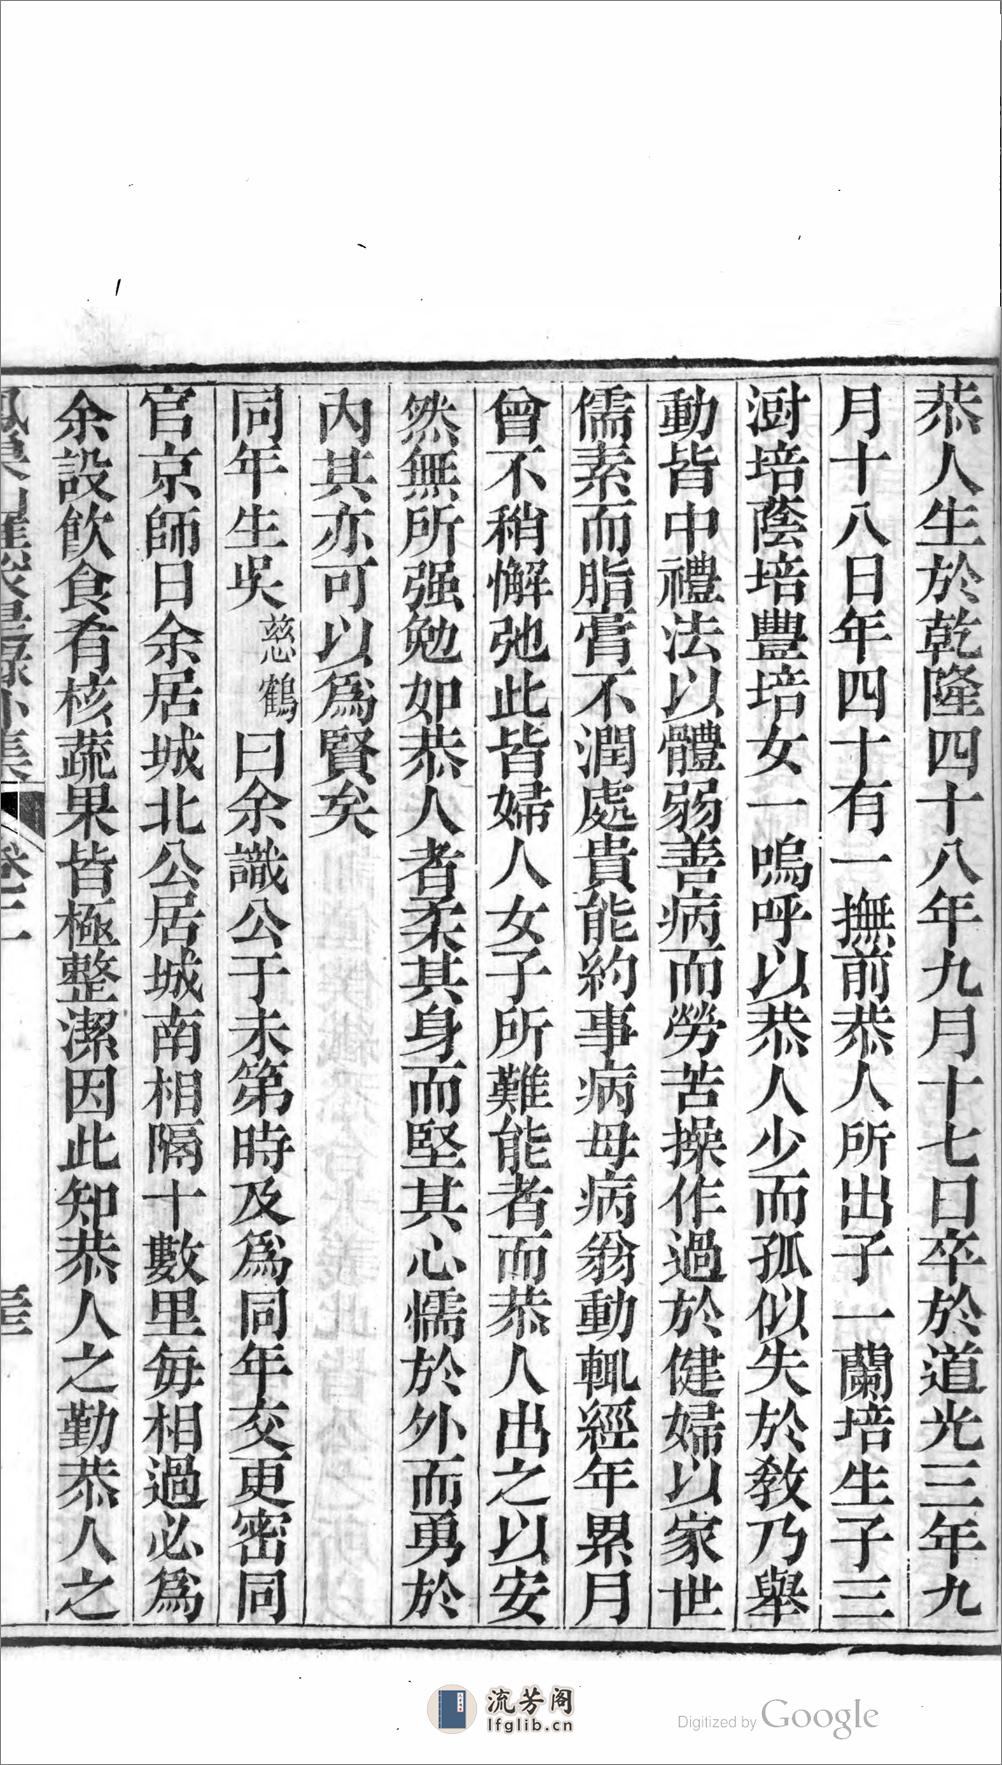 恭人生於乾隆四十八年九月十七日卒於道光三年九
月十八日年四十有一撫前恭人所出子一蘭培生子三
澍培蔭培豐培女一嗚呼以恭人少而孤似失於教乃舉
動皆中禮法以體弱善病而勞苦操作過於健婦以家世
儒素而脂膏不潤處貴能約事病母病翁動輒經年累月
曾不稍懈弛此皆婦人女子所難能者而恭人出之以安
然無所强勉如恭人者柔其身而堅其心懦於外而勇於
內其亦可以爲賢矣
同年生吳慈鶴曰余識公于未第時及爲同年交更密同
官京師日余居城北公居城南相隔十數里每相過必爲
余設飲食肴核蔬果皆極整潔因此知恭人之勤恭人之
卷三
流芳阁
lfglib.cn
Digitized by Google